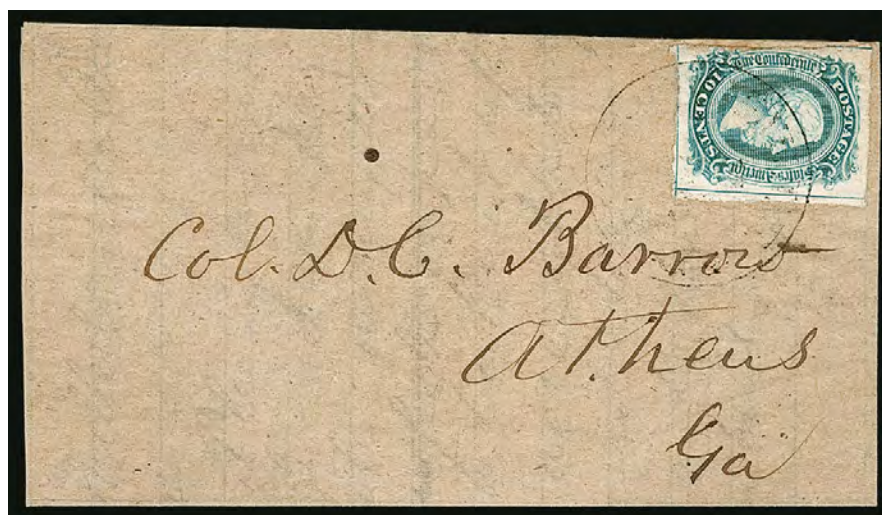 The Confederate
States America
POSTAGE
10 CENTS
Col. D. C. Barrow
Athens
Ga